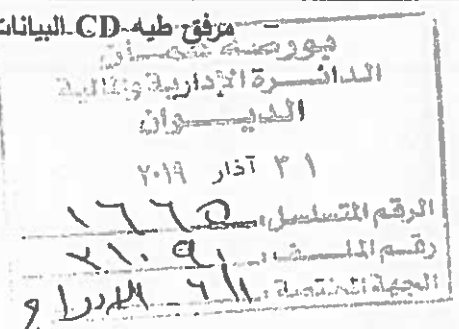 - مرفق طيه CD البيانات
بورصة عمان
الدائرة الإدارية والمالية
الديوان
٣١ آذار ٢٠١٩
الرقم المتسلسل: ١٦٦٥
رقم الملف: ٣١٠٩١
الجهة المختصة: